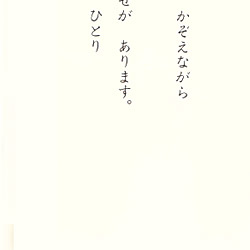 かぞえながら
せが あります。
ひとり